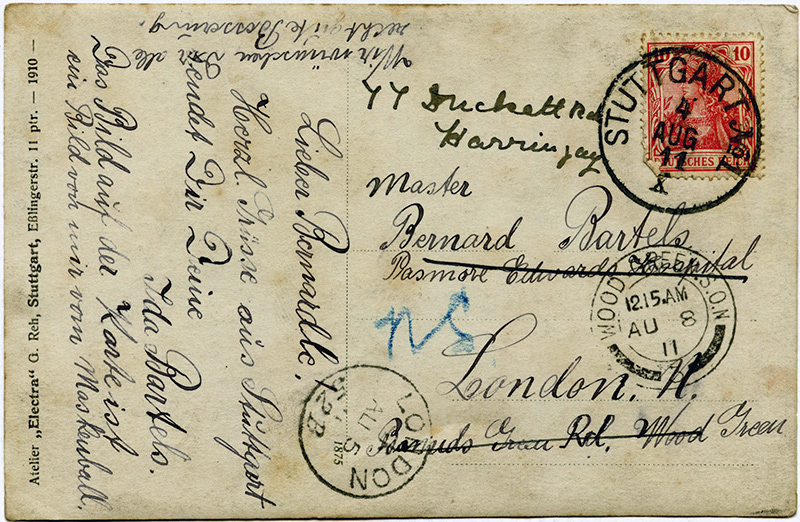 Wir wünschen Dir alle
recht gute Besserung.
Lieber Bernardle,
Herzl. Grüsse aus Stuttgart
sendet Dir Deine
Ida Bartels.
Das Bild auf der Karte ist
ein Bild von mir vom Maskenball.
Atelier „Electra“ G. Reh, Stuttgart, Eßlingerstr. 11 ptr. — 1910 —
77 Duckett Rd
Harringay
Master
Bernard Bartels
Pasmore Edwards Hospital
London. N.
Bounds Green Rd. Wood Green
NS
10
DEUTSCHES REICH
STUTTGART
4
AUG
11
X
WOOD GREEN S.O.N
12.15.AM
AU 8
11
LONDON
AU 5
1875